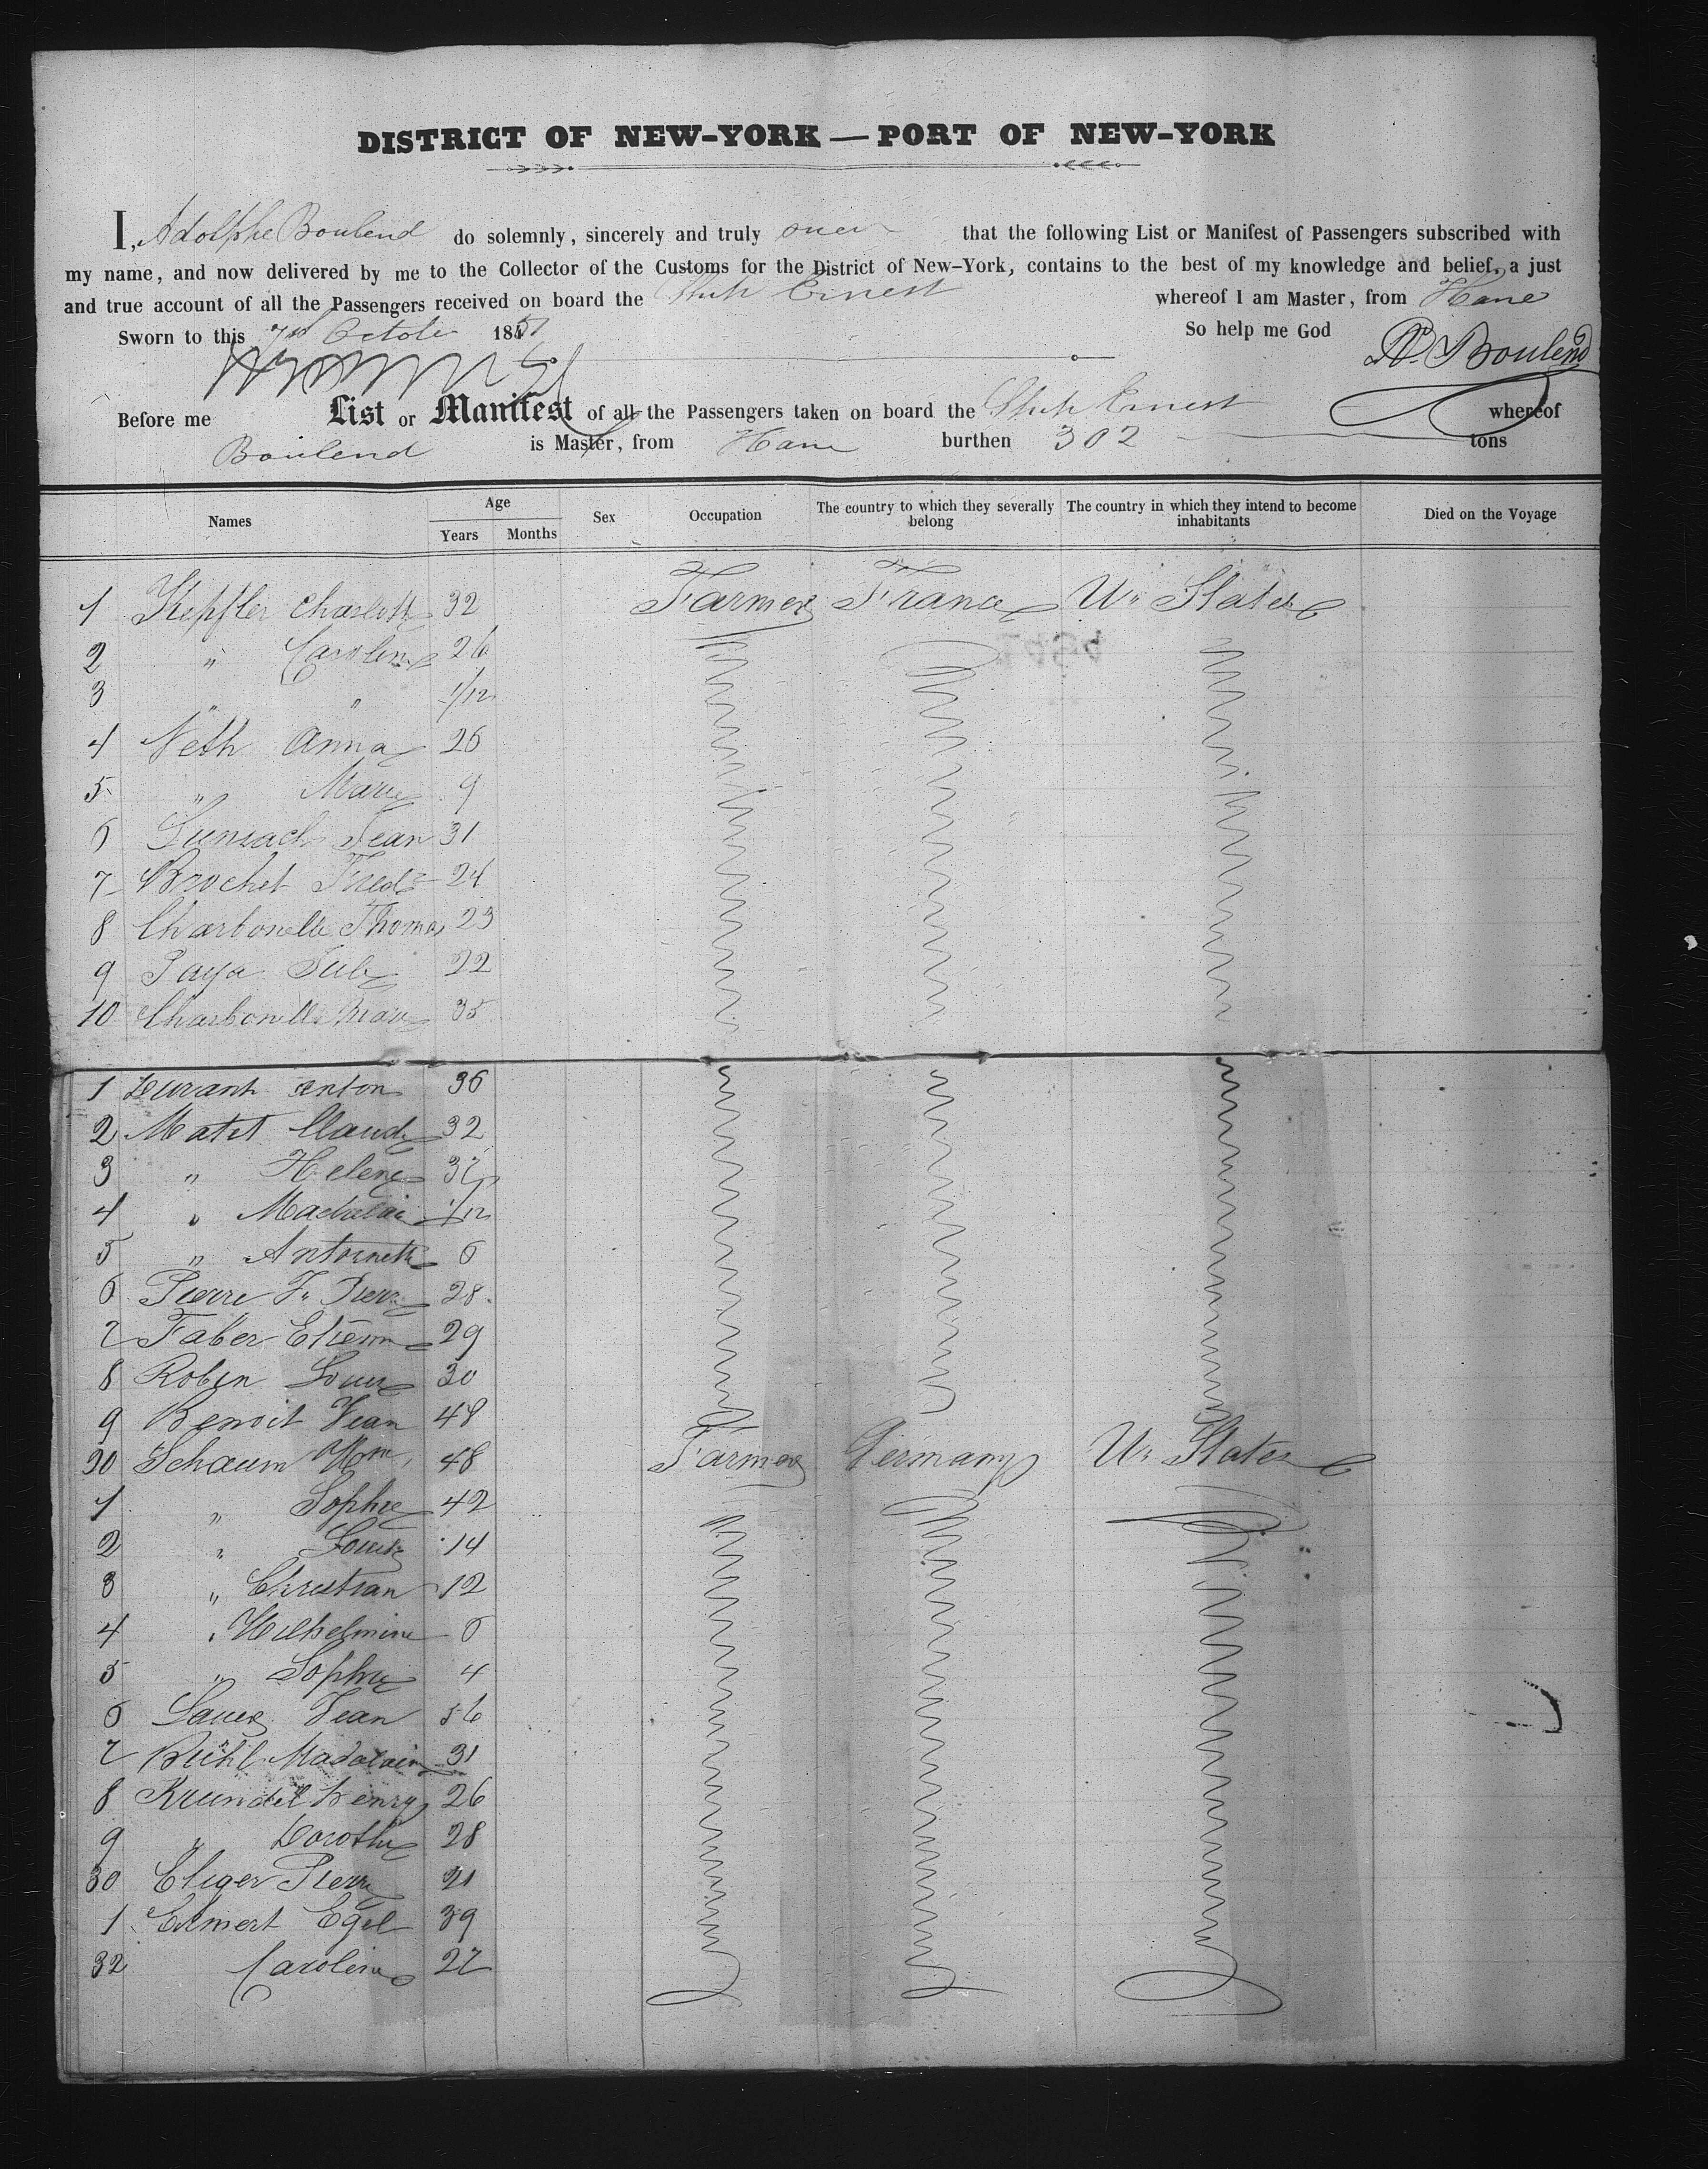 DISTRICT OF NEW-YORK — PORT OF NEW-YORK
I, Adolphe Boulend do solemnly, sincerely and truly that the following List or Manifest of Passengers subscribed with
my name, and now delivered by me to the Collector of the Customs for the District of New-York, contains to the best of my knowledge and belief, a just
and true account of all the Passengers received on board the Ship Ernest whereof I am Master, from Havre
Sworn to this 7th 185 So help me God A. Boulend
Before me List or Manifest of all the Passengers taken on board the Ship Ernest whereof
Boulend is Master, from burthen 302 tons
Names Age Years Months Sex Occupation The country to which they severally belong The country in which they intend to become inhabitants Died on the Voyage
1 32 Farmer France U. States
2 " Caroline 26
3 " " 1/12
4 Neth Anna 26
5 " Marie 9
6 Jean 31
7 Brochet Fredc 24
8 Charbonelle Thomas 23
9 Paya 22
10 Charbonelle Marie 35
1 Durant Anton 36
2 Matet Claude 32
3 " Helene 32
4 " 1/12
5 " Antoinette 6
6 Pierre F. Pierre 28
7 Faber Etienne 29
8 Robin Louis 30
9 Benoit Jean 48
20 Schaum Wm 48 Farmer Germany U. States
1 " Sophie 42
2 " 14
3 " Christian 12
4 " Wilhelmine 6
5 " Sophie 4
6 Sauer Jean 56
7 Buhl Madalain 31
8 Krundel Henry 26
9 " Dorothe 28
30 Eliger Pierre 21
1 Egel 39
32 Caroline 27